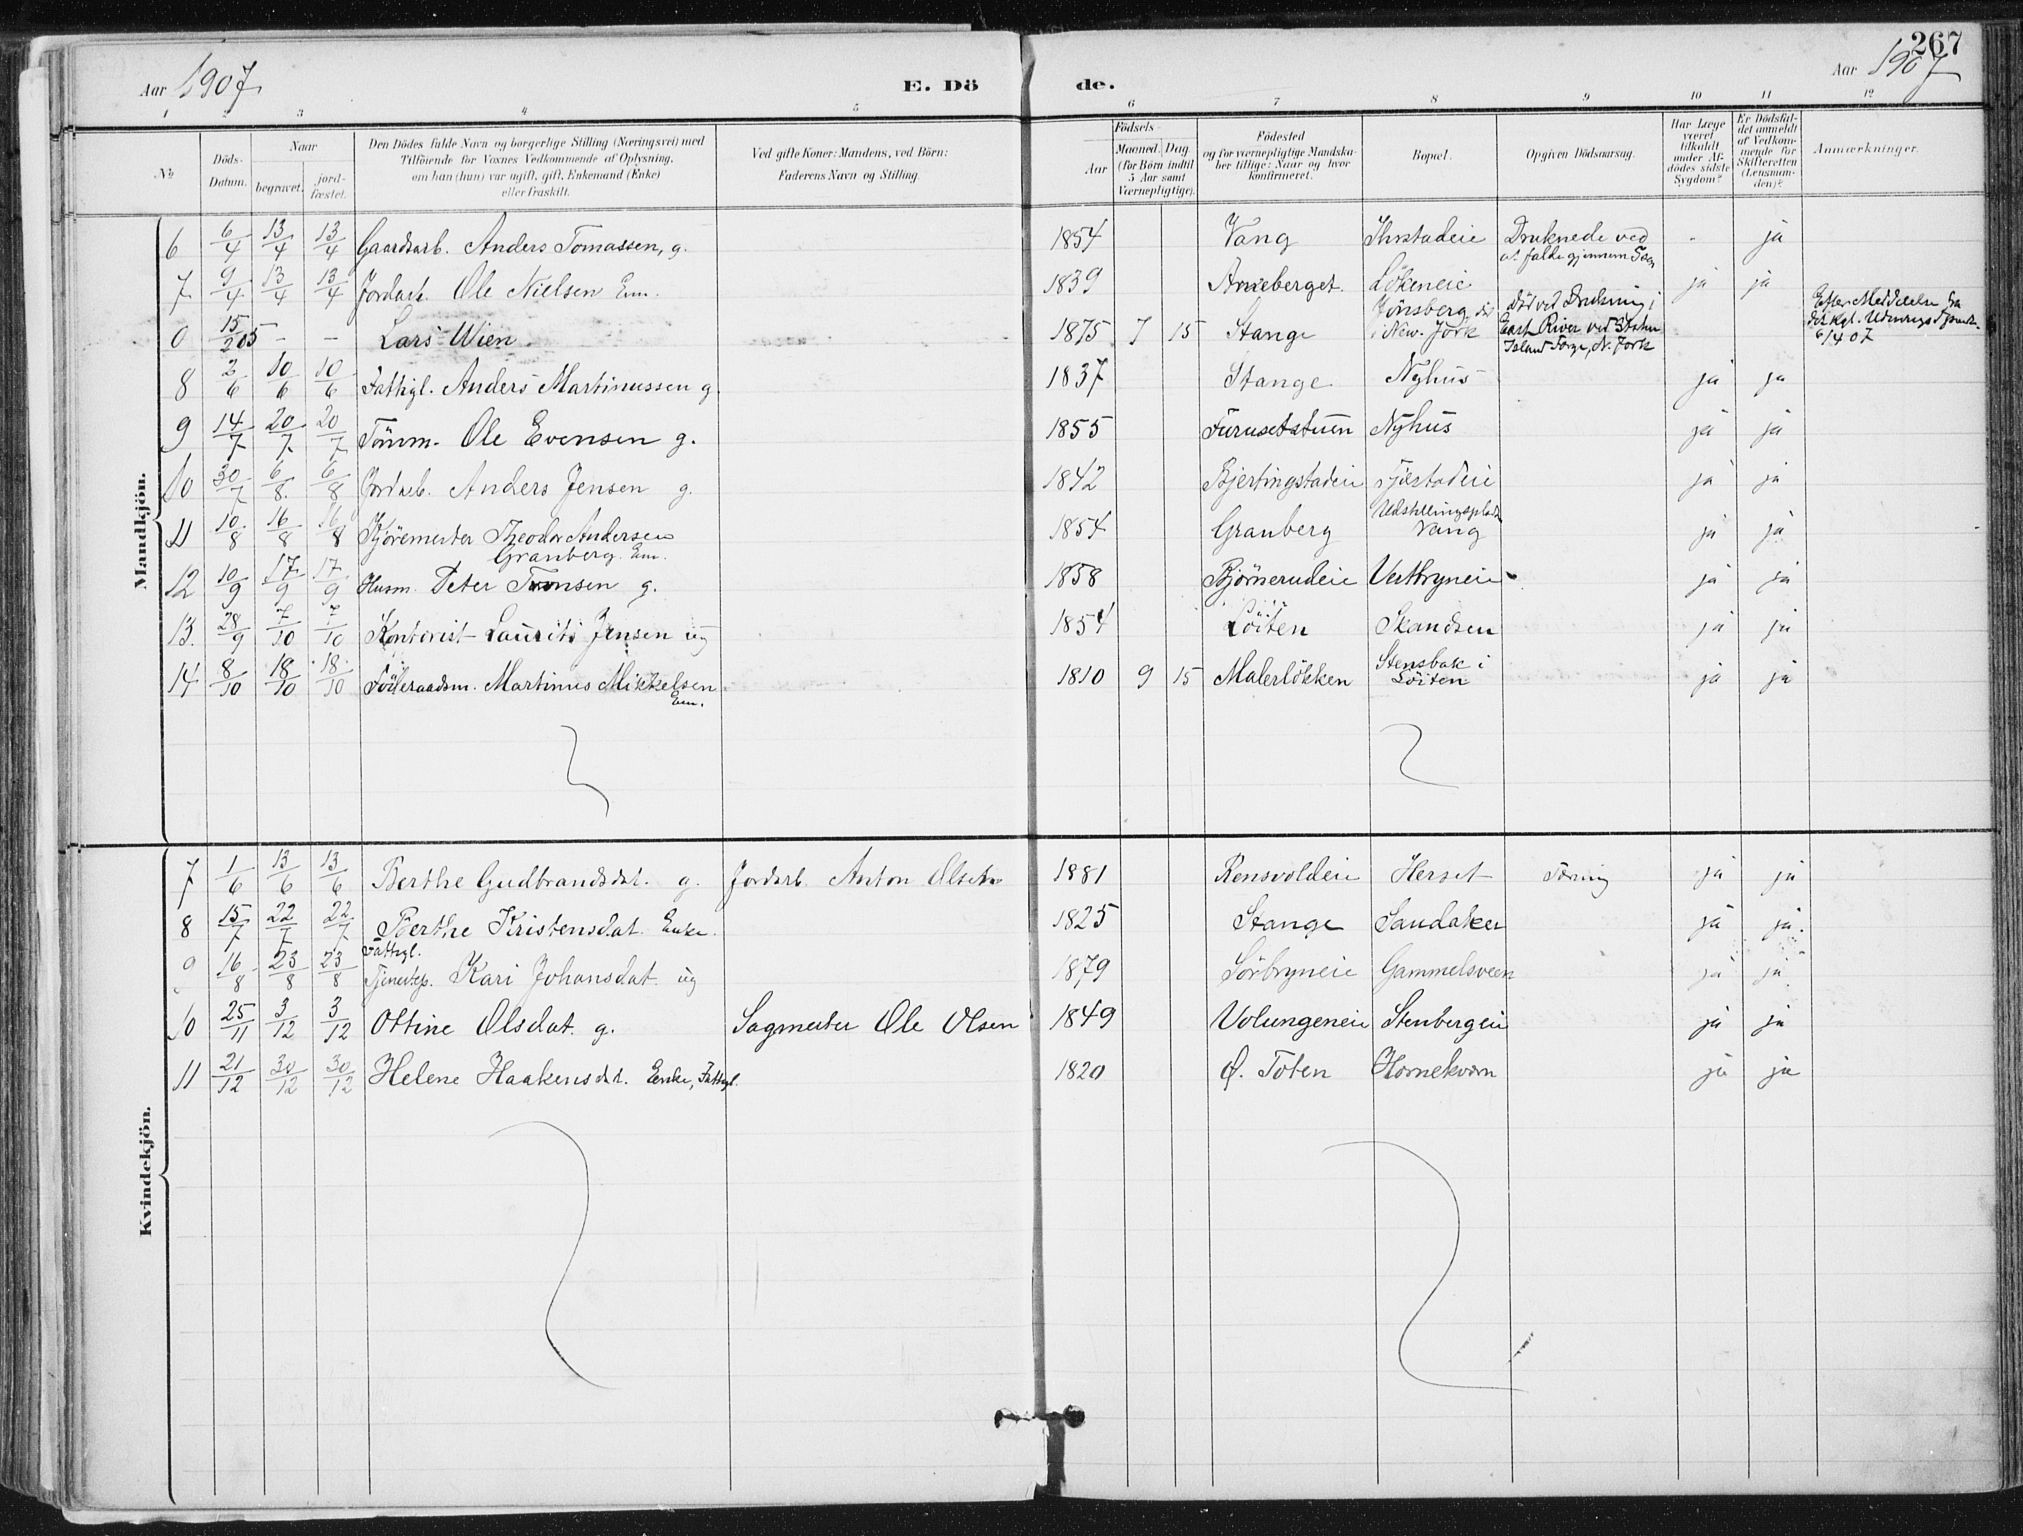 267
Aar 1907 E. Dö de. Aar 1907
1 2 3 4 5 6 7 8 9 10 11 12
№
Döds-Datum.
Naar
begravet.
jord-fæstet.
Den Dödes fulde Navn og borgerlige Stilling (Næringsvei) med
Tilföiende for Voxnes Vedkommende af Oplysning,
om han (hun) var ugift, gift, Enkemand (Enke)
eller fraskilt.
Ved gifte Koner: Mandens, ved Börn:
Faderens Navn og Stilling.
Födsels-
Aar
Maaned. Dag
(for Börn indtil
5 Aar samt
Værnepligtige).
Födested
og for værnepligtige Mandska-
ber tillige: Naar og hvor
konfirmeret.
Bopæl.
Opgiven Dödsaarsag.
Har Læge
været
tilkaldt
under Af-
dödes sidste
Sygdom?
Er Dödsfal-
det anmeldt
af Vedkom-
mende for
Skifteretten
(Lensman-
den)?
Anmærkninger.
Mandkjön.
6 6/4 13/4 13/4 Gaardsarb. Anders Tomassen, g. 1854 Vang Druknede ved at falde gjennem - ja
7 9/4 13/4 13/4 Jordarb. Ole Nielsen Em. 1839 Arneberget Lökeneie ja ja
0 15/2 05 - - Lars Wien 1875 7 15 Stange Jönsberg, i New-Jork död ved Drukning i East River ved Staten Island Færge, N. Jork Efter Meddelelse fra det kgl. 6/4 07
8 2/6 10/6 10/6 Fattigl. Anders Martinussen g. 1837 Stange Nyhus ja ja
9 14/7 20/7 20/7 Tömm. Ole Evensen g. 1855 Furusetstuen Nyhus ja ja
10 30/7 6/8 6/8 Jordarb. Anders Jensen g. 1842 Bjertingstadeie ja ja
11 10/8 16/8 16/8 Kjöremester Theodor Andersen 1854 Granberg Udstillingsplads Vang ja ja
Granberg. Em.
12 10/9 17/9 17/9 Husm. Peter g. 1858 Björnerudeie Vestbryneie ja ja
13. 28/9 7/10 7/10 Kontorist Laurits Jensen ug 1854 Löiten Skandsen ja ja
14 8/10 18/10 18/10 Föderaadsm. Martinus Mikkelsen 1810 9 15 Malerlökken Stensbak i Löiten ja ja
Em.
Kvindekjön.
7 1/6 13/6 13/6 Berthe Gudbrandsdat. g. Jordarb. Anton Olsen 1881 Rensvoldeie Herset Tæring ja ja
8 15/7 22/7 22/7 Berthe Kristensdat. Enke. 1825 Stange Sandaker ja ja.
Fattigl.
9 16/8 23/8 23/8 Tjenestep. Kari Johansdat. ug 1879 Sörbryneie Gammelsveen ja ja
10 25/11 3/12 3/12 Ottine Olsdat. g. Sagmester Ole Olsen 1849 Volungeneie Stenbergeie ja ja
11 21/12 30/12 30/12 Helene Haakensdat. Enke, Fattigl. 1820 Ø. Toten Hornekværn ja ja